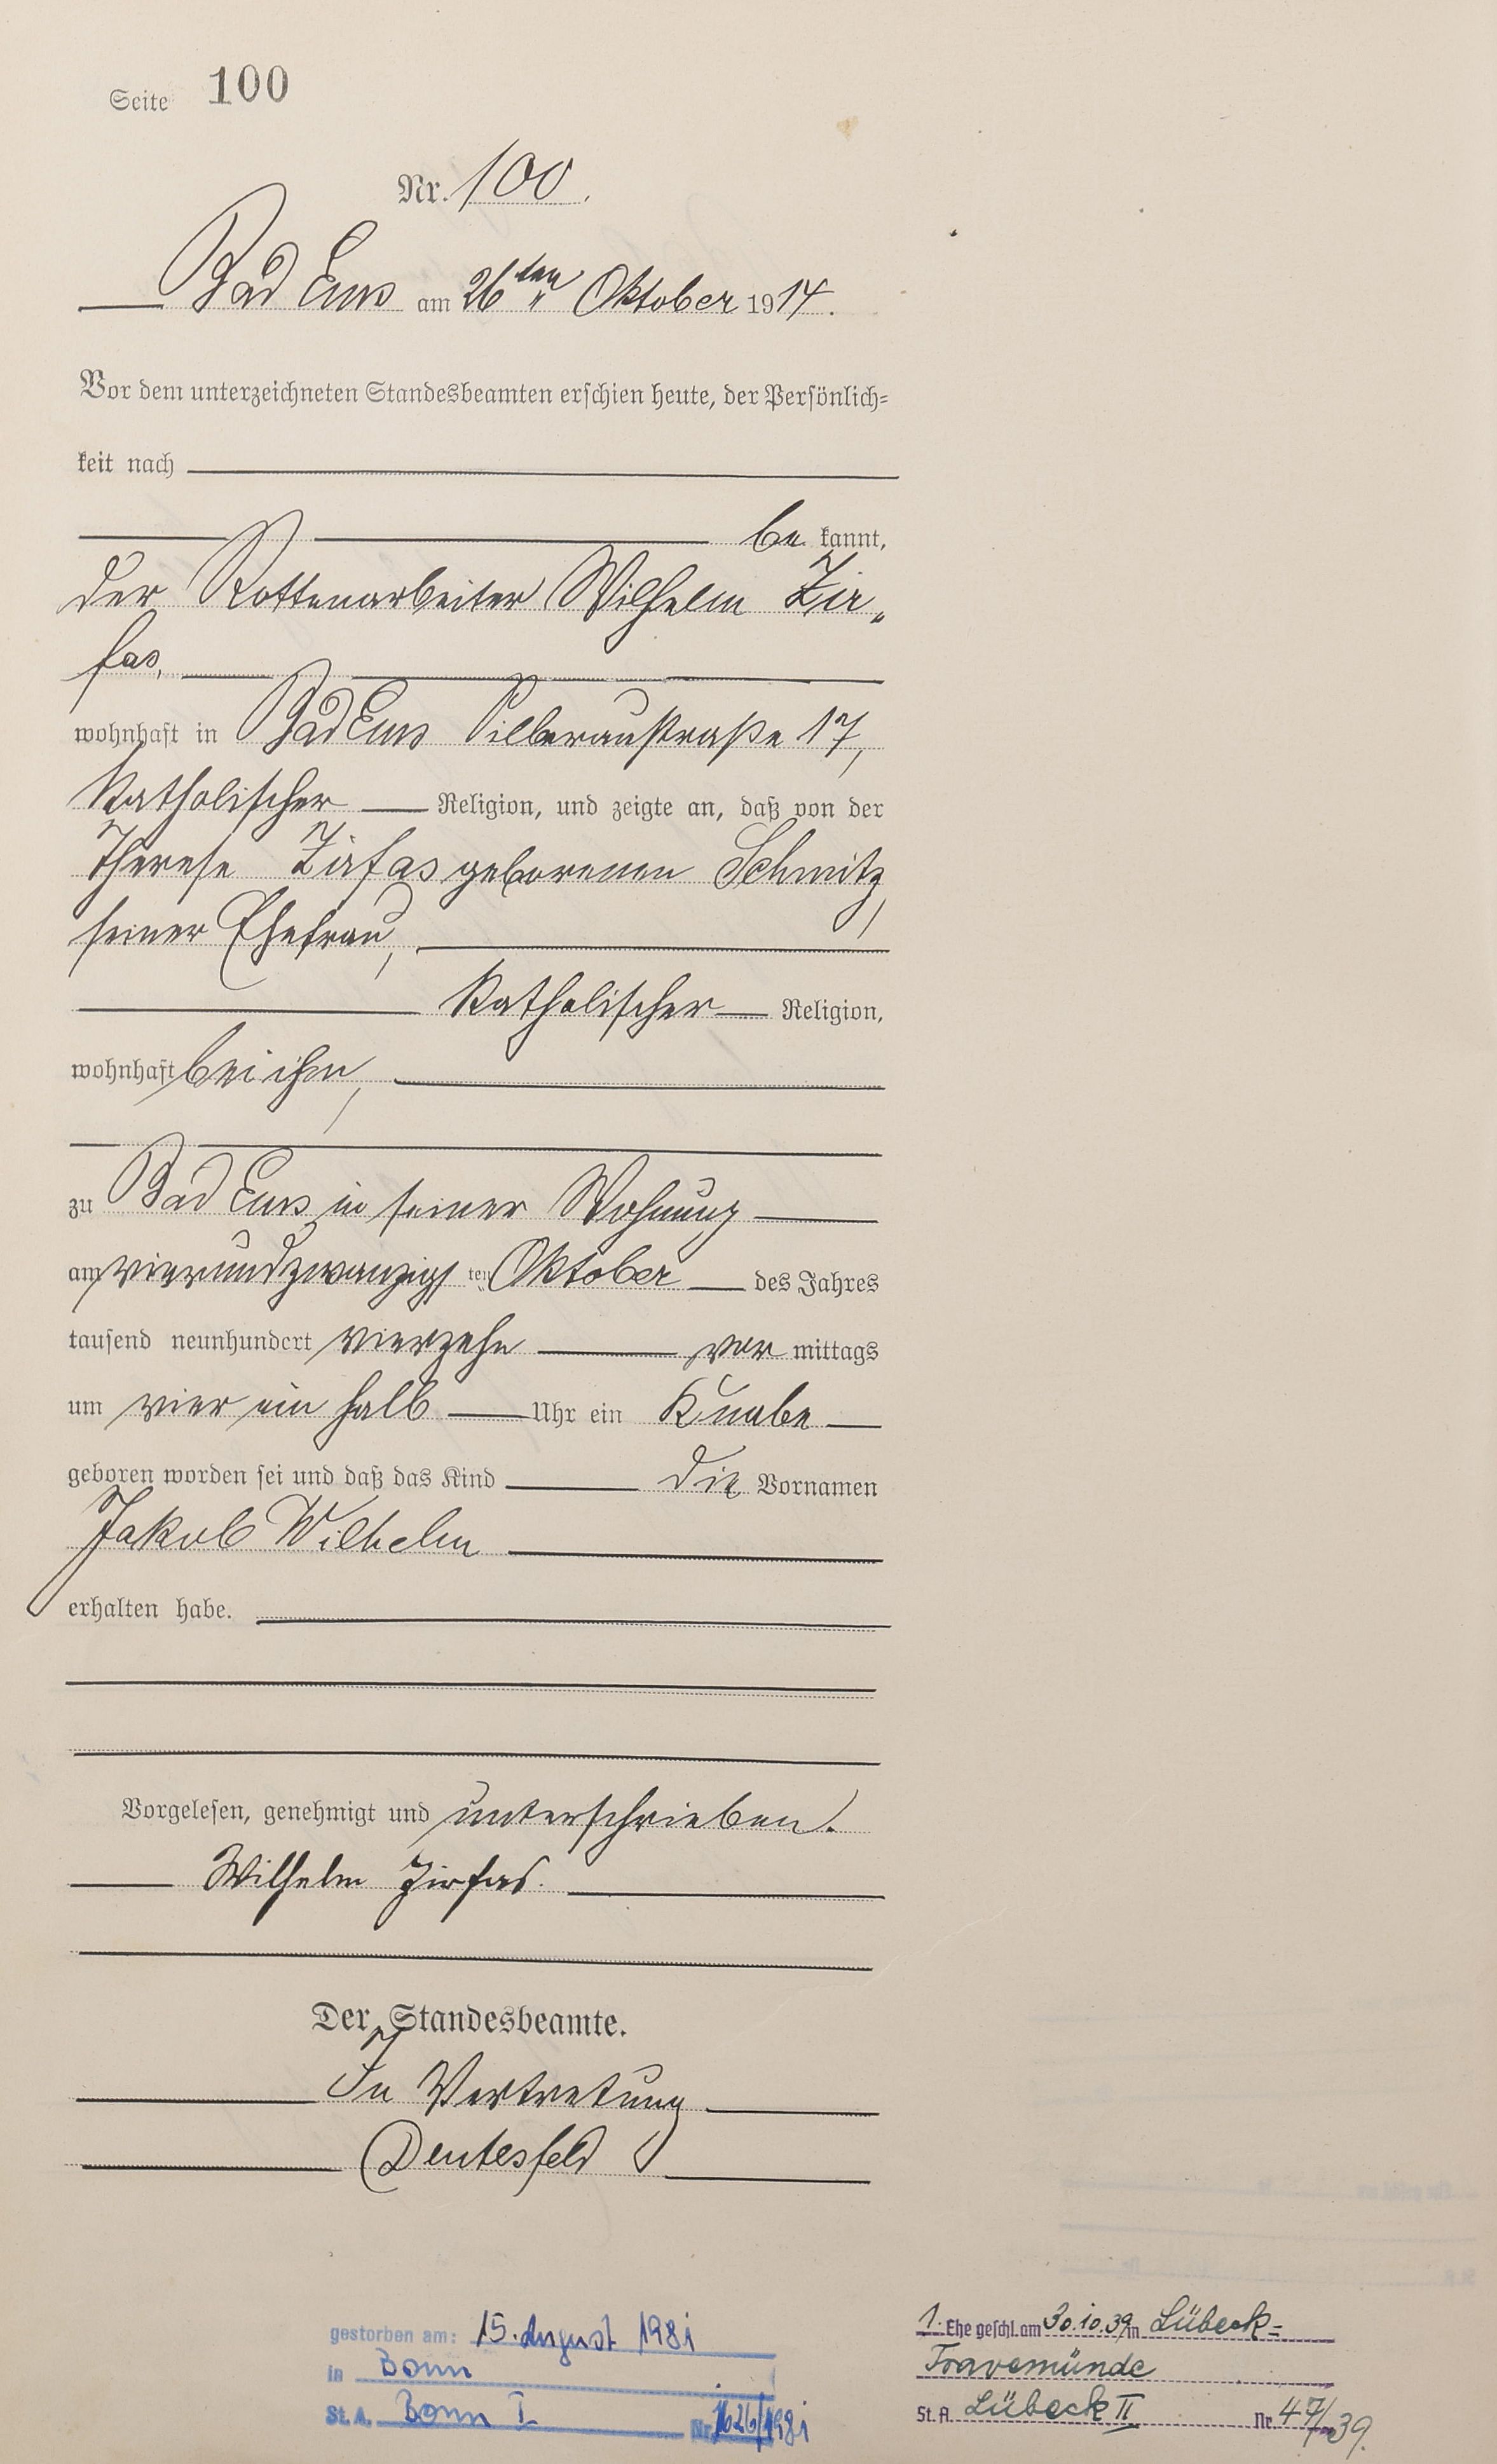 Seite 100
Nr. 100.
Bad Ems am 26ten Oktober 1914.
Vor dem unterzeichneten Standesbeamten erschien heute, der Persönlich=
keit nach
be kannt,
der Rottenarbeiter Wilhelm Zir„
fas,
wohnhaft in Bad Ems Silberaustraße 17,
katholischer Religion, und zeigte an, daß von der
Therese Zirfas geborenen Schmitz,
seiner Ehefrau,
katholischer Religion,
wohnhaft bei ihm,
zu Bad Ems in seiner Wohnung
am vierundzwanzigs ten Oktober des Jahres
tausend neunhundert vierzehn vor mittags
um vier ein halb Uhr ein Knabe
geboren worden sei und daß das Kind die Vornamen
Jakob Wilhelm
erhalten habe.
Vorgelesen, genehmigt und unterschrieben.
Wilhelm Zirfas.
Der Standesbeamte.
In Vertretung
Deutesfeld
gestorben am: 15. August 1981
in Bonn
St. A. Bonn I Nr. 1626/1981
1. Ehe geschl. am 30.10.39 in Lübeck=
Travemünde
St. A. Lübeck II Nr. 47/39.